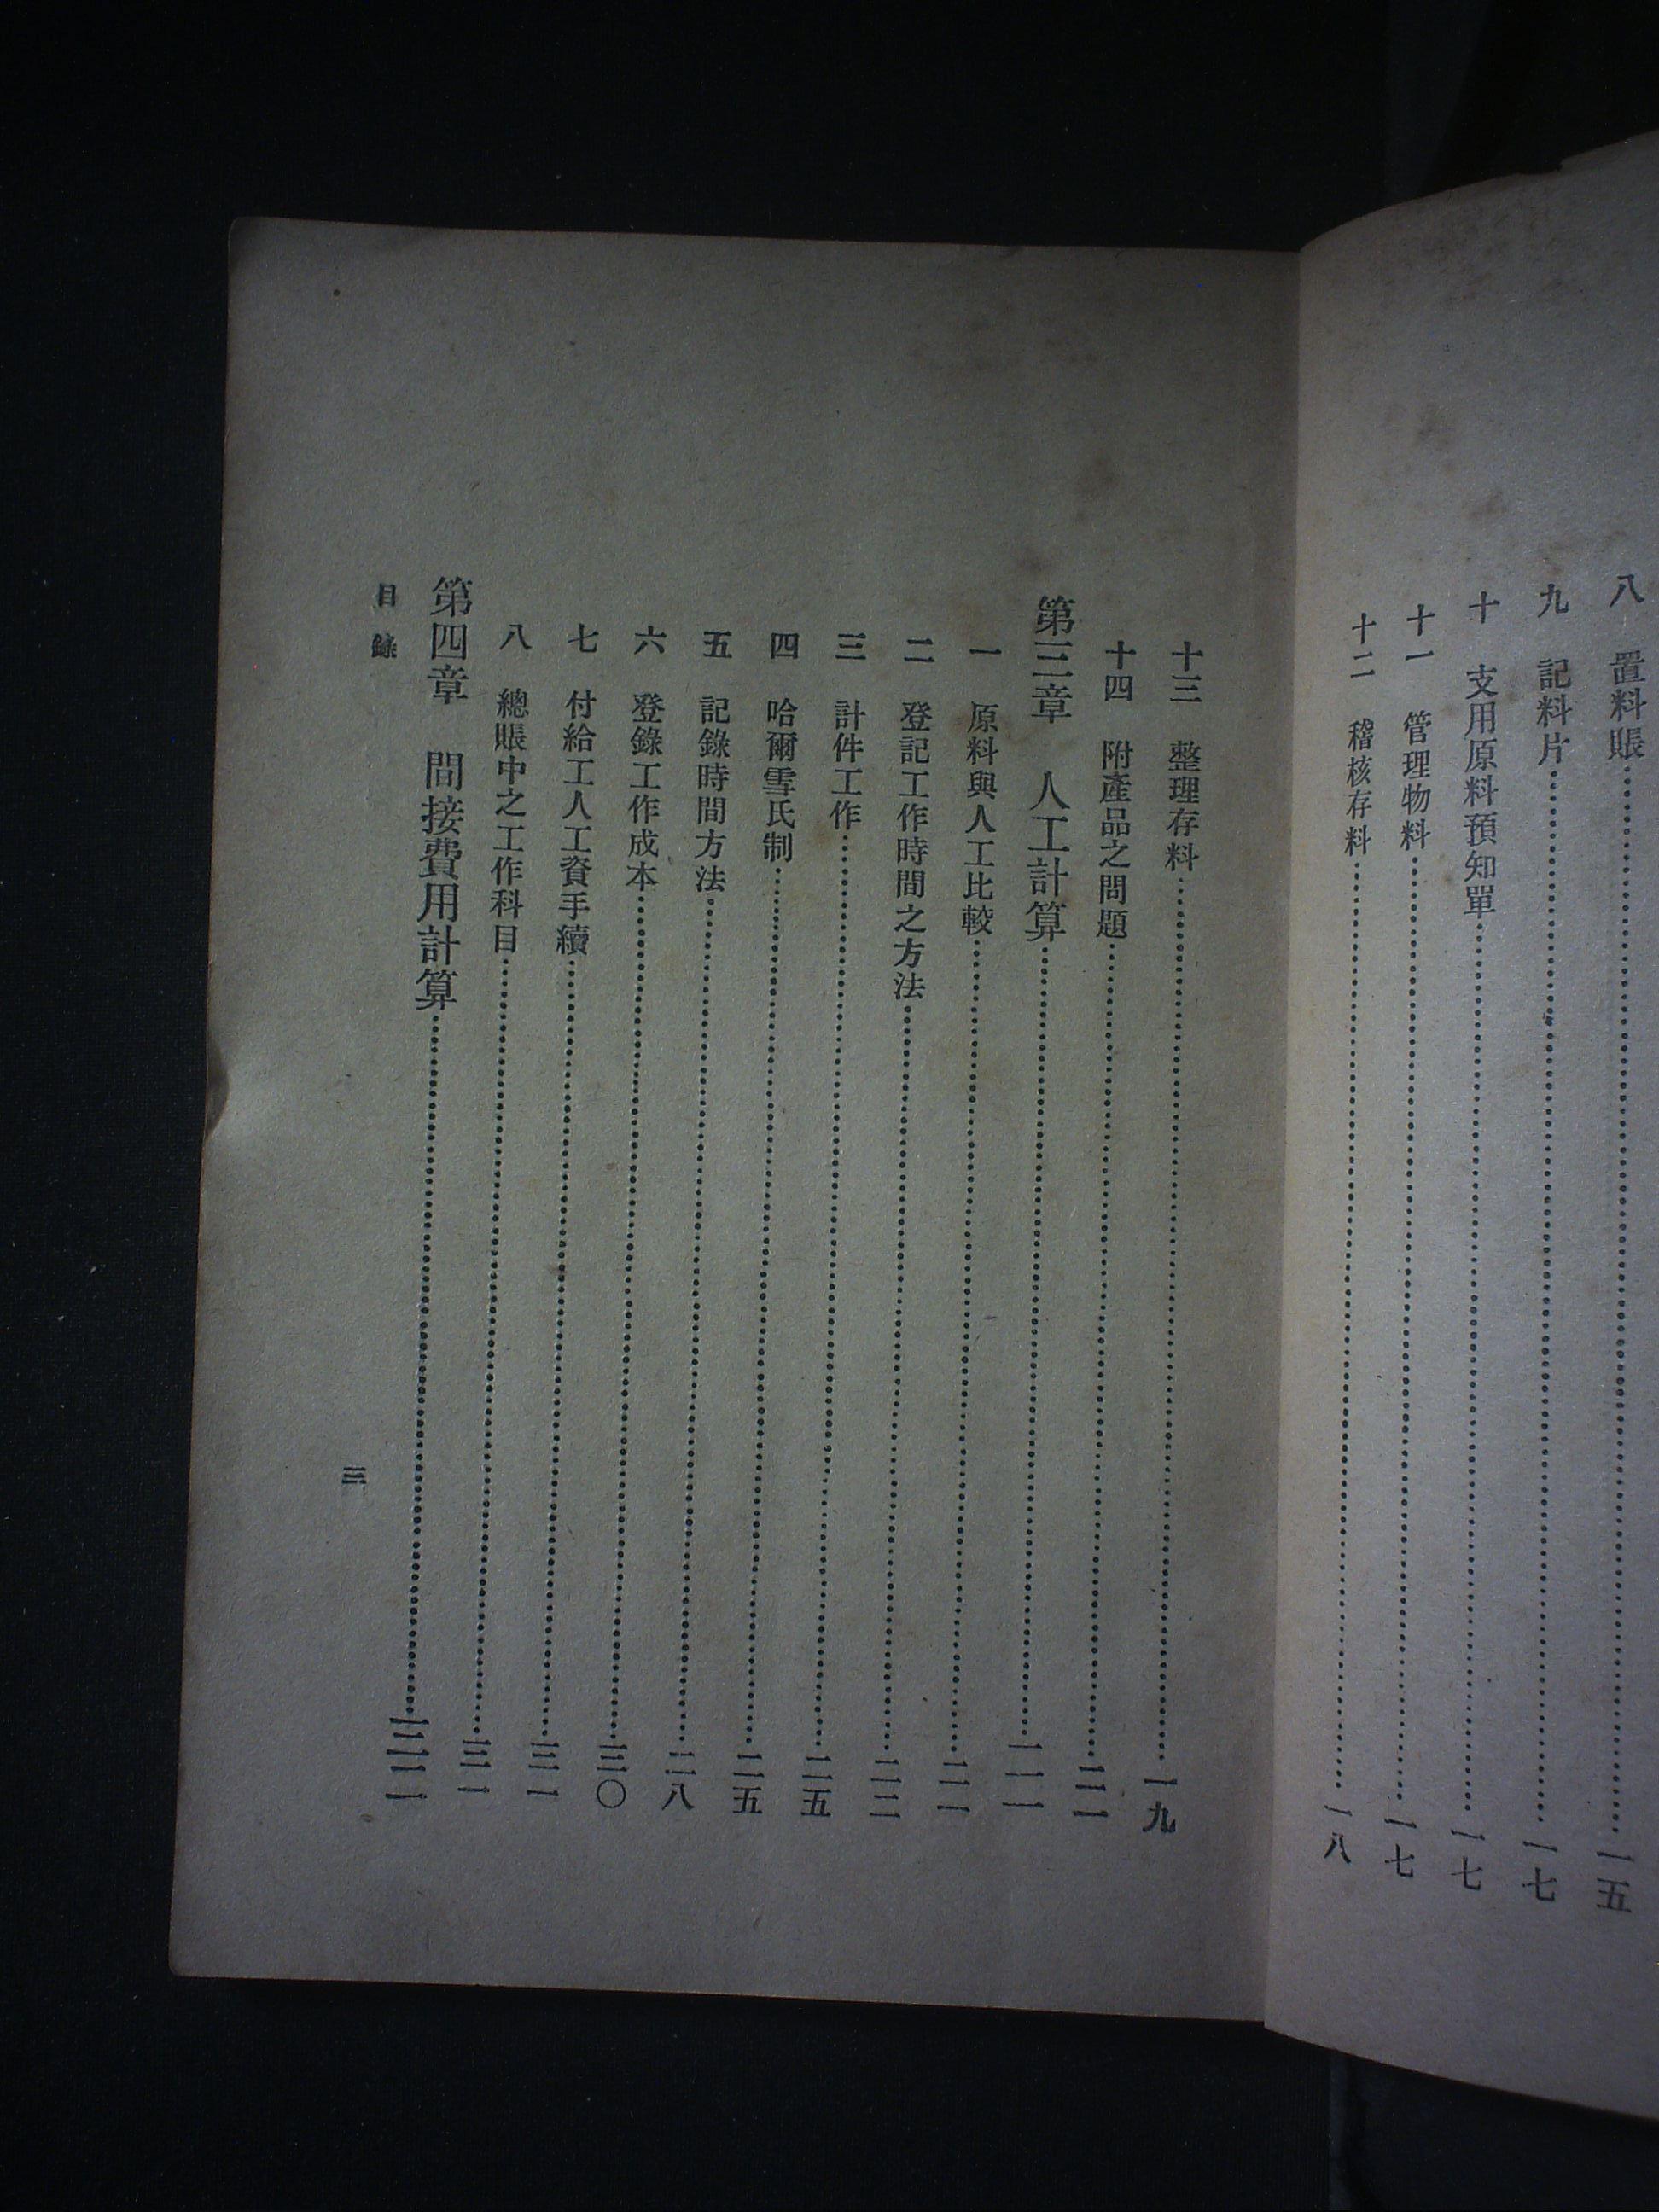 八　置料賬……一五
九　記料片……一七
十　支用原料預知單……一七
十一　管理物料……一七
十二　稽核存料……一八
十三　整理存料……一九
十四　附產品之問題……二一
第三章　人工計算……二一
一　原料與人工比較……二一
二　登記工作時間之方法……二二
三　計件工作……二五
四　哈爾雪氏制……二五
五　記錄時間方法……二八
六　登錄工作成本……三〇
七　付給工人工資手續……三一
八　總賬中之工作科目……三一
第四章　間接費用計算……三二
目錄
三